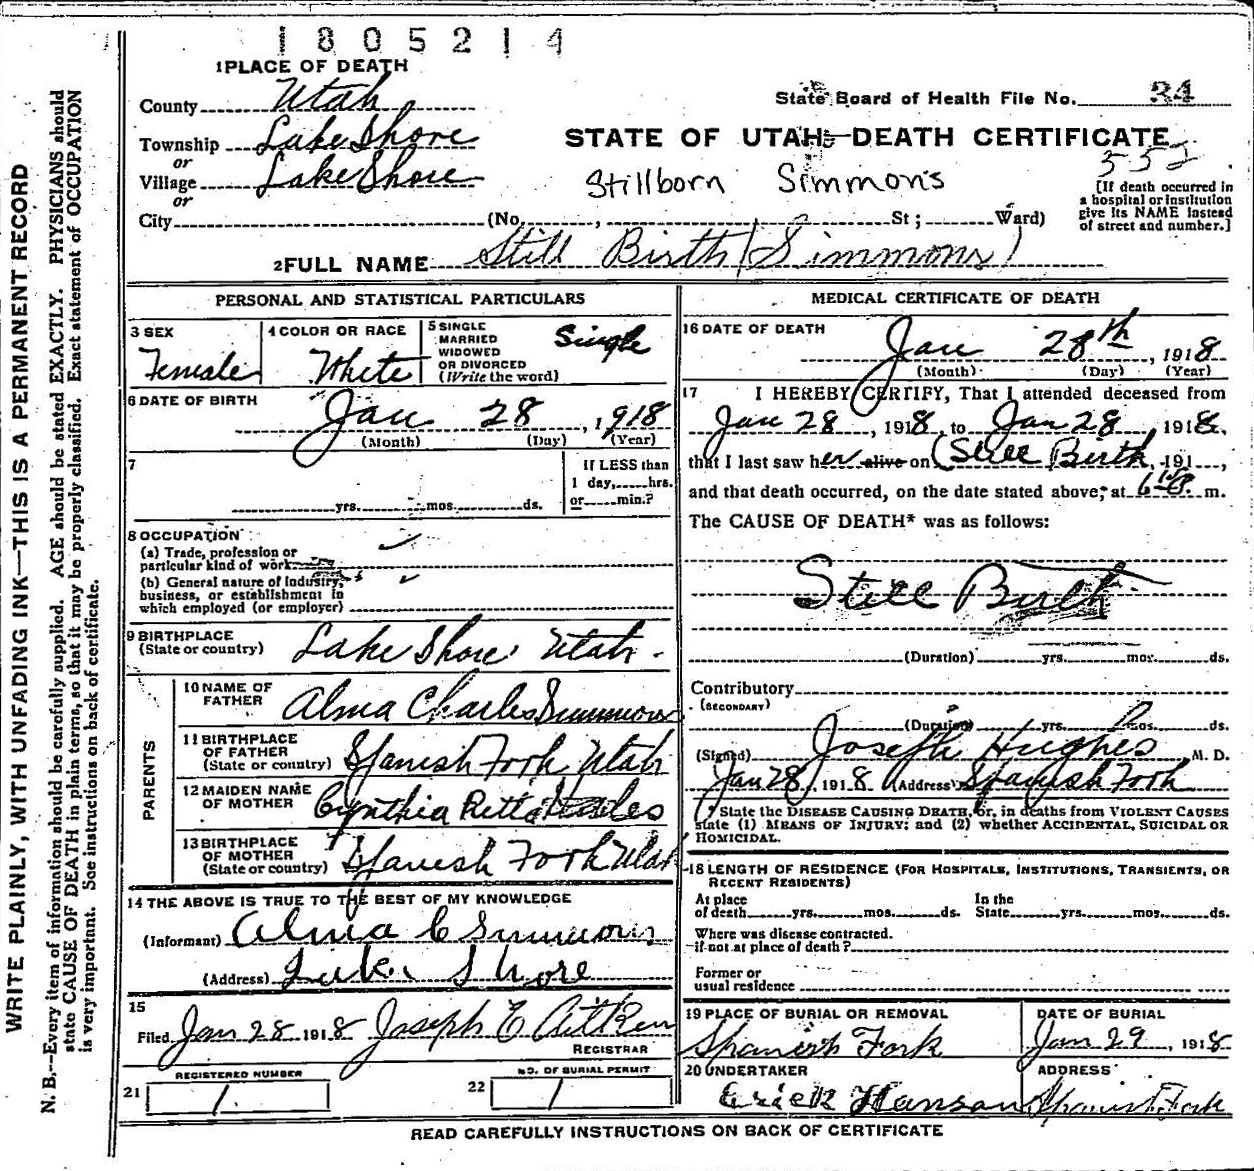 1805214
1 PLACE OF DEATH
County Utah
State Board of Health File No. 34
Township Lake Shore
or
STATE OF UTAH—DEATH CERTIFICATE
Village Lake Shore
or
Stillborn Simmons
[If death occurred in
a hospital or institution
give its NAME instead
of street and number.]
City (No. , St ; Ward)
2 FULL NAME Still Birth (Simmons)
PERSONAL AND STATISTICAL PARTICULARS
3 SEX
Female
4 COLOR OR RACE
White
5 SINGLE
MARRIED
WIDOWED
OR DIVORCED
(Write the word)
Single
6 DATE OF BIRTH
Jan 28, 1918
(Month) (Day) (Year)
7
yrs. mos. ds.
If LESS than
1 day, hrs.
or min.?
8 OCCUPATION
(a) Trade, profession or
particular kind of work
(b) General nature of industry,
business, or establishment in
which employed (or employer)
9 BIRTHPLACE
(State or country) Lake Shore Utah.
PARENTS
10 NAME OF
FATHER Alma Charles Simmons
11 BIRTHPLACE
OF FATHER
(State or country) Spanish Fork Utah
12 MAIDEN NAME
OF MOTHER Cynthia Retta
13 BIRTHPLACE
OF MOTHER
(State or country) Spanish Fork Utah
14 THE ABOVE IS TRUE TO THE BEST OF MY KNOWLEDGE
(Informant) Alma C Simmons
(Address) Lake Shore
15
Filed Jan 28 1918 Joseph E Aitken
REGISTRAR
REGISTERED NUMBER
21 1
NO. OF BURIAL PERMIT
22 1
MEDICAL CERTIFICATE OF DEATH
16 DATE OF DEATH
Jan 28th, 1918
(Month) (Day) (Year)
17 I HEREBY CERTIFY, That I attended deceased from
Jan 28, 1918, to Jan 28 1918,
that I last saw her alive on (Still Birth, 191 ,
and that death occurred, on the date stated above, at m.
The CAUSE OF DEATH* was as follows:
Still Birth
(Duration) yrs. mos. ds.
Contributory
(SECONDARY)
(Duration) yrs. mos. ds.
(Signed) Joseph Hughes M. D.
Jan 28, 1918 (Address) Spanish Fork
* State the DISEASE CAUSING DEATH, or, in deaths from VIOLENT CAUSES
state (1) MEANS OF INJURY; and (2) whether ACCIDENTAL, SUICIDAL OR
HOMICIDAL.
18 LENGTH OF RESIDENCE (FOR HOSPITALS, INSTITUTIONS, TRANSIENTS, OR
RECENT RESIDENTS)
At place
of death yrs. mos. ds.
In the
State yrs. mos. ds.
Where was disease contracted.
if not at place of death?
Former or
usual residence
19 PLACE OF BURIAL OR REMOVAL
Spanish Fork
DATE OF BURIAL
Jan 29, 1918
20 UNDERTAKER
Erick Hanson
ADDRESS
Spanish Fork
READ CAREFULLY INSTRUCTIONS ON BACK OF CERTIFICATE
WRITE PLAINLY, WITH UNFADING INK—THIS IS A PERMANENT RECORD
N. B.—Every item of information should be carefully supplied. AGE should be stated EXACTLY. PHYSICIANS should
state CAUSE OF DEATH in plain terms, so that it may be properly classified. Exact statement of OCCUPATION
is very important. See instructions on back of certificate.